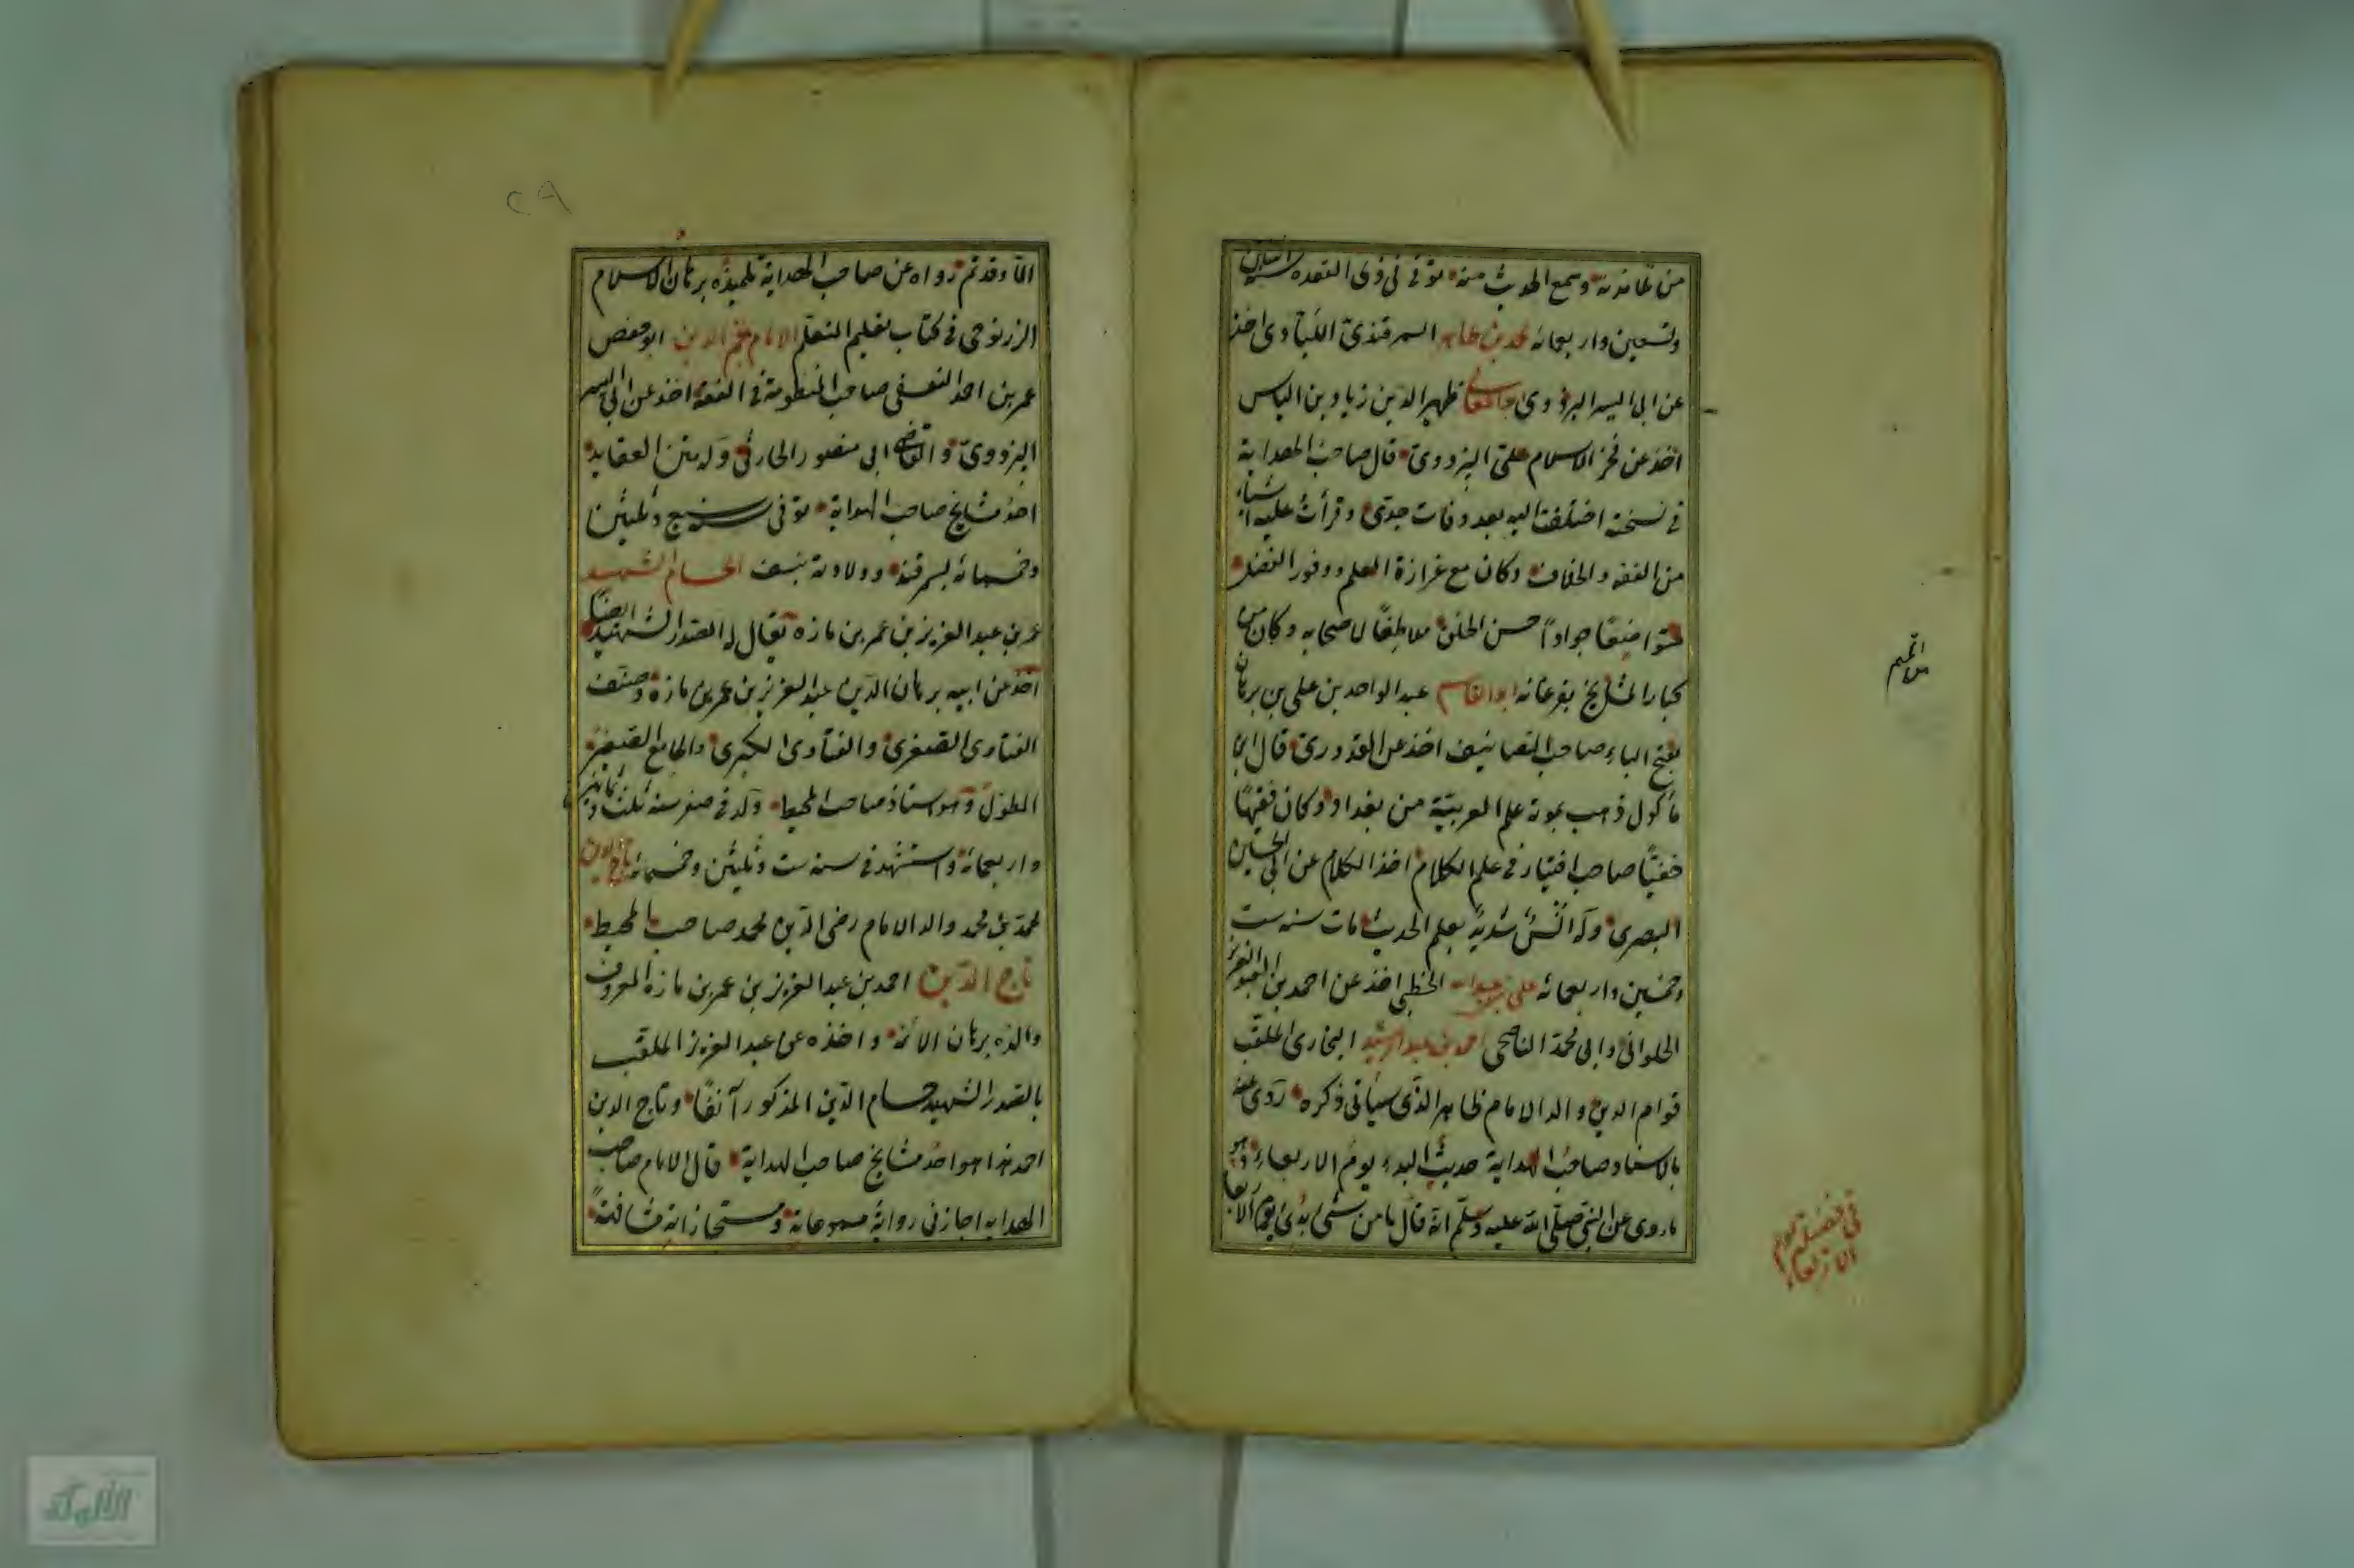 من تلامذته وسمع الحديث منه توفى فى ذى القعده سنة اثنين
وتسعين واربعمائه محمد بن طاهر السمرقندى اللباوى اخذ
عن ابى اليسر البزدوى ظهير الدين زياد بن الياس
اخذ عن فخر الاسلام على البزدوى قال صاحب الهداية
فى نسخته اختلفت اليه بعد وفات جدى وقرأت عليه اشياء
من الفقه والخلاف وكان مع غزازة العلم ووفور الفضل
متواضعًا جوادًا حسن الخلق ملاطفًا لاصحابه وكان من
كبار المشايخ بفرغانه ابو القاسم عبد الواحد بن على بن برهان
بفتح الباء صاحب التصانيف اخذ عن القدورى قال ابن
ماكول ذهب بموته علم العربيّة من بغداد وكان فقيهًا
حنفيًا صاحب اختيار فى علم الكلام اخذ الكلام عن ابى الحسين
البصرى وله انس شديد بعلم الحديث مات سنه ست
وخمسين واربعمائه على بن عبد الله الخطبى اخذ عن احمد بن عبد العزيز
الحلوانى وابى محمد الناصحى احمد بن عبد الرشيد البخارى الملقب
قوام الدين والد الامام طاهر الذى سيأتى ذكره روى عنه
بالاسناد صاحب الهداية حديث البدء يوم الاربعاء وهو
ماروى عن النبى صلى الله عليه وسلم انه قال مامن شئ بدئ يوم الاربعا
من المتمم
فى فضيلة يوم الاربعاء
٢٩
الا وقد تم رواه عن صاحب الهداية تلميذه برهان الاسلام
الزرنوجى فى كتاب تعليم المتعلم الامام نجم الدين ابو حفص
عمر بن احمد النسفى صاحب المنظومة فى الفقه اخذ عن ابى اليسر
البزدوى والقاضى ابى منصور الحارثى وله متن العقايد
احد مشايخ صاحب الهداية توفى سنة سبع وثلثين
وخمسمائه بسمرقند وولادته بنسف الحسام الشهيد
عمر بن عبد العزيز بن عمر بن مازه يقال له الصدر الشهيد ايضا
اخذ عن ابيه برهان الدين عبد العزيز بن عمر بن مازه وصنف
الفتاوى الصغرى والفتاوى الكبرى والجامع الصغير
المطول وهو استاذ صاحب المحيط ولد فى صفر سنه ثلث وثمانين
واربعمائه واستشهد فى سنه ست وثلثين وخمسمائه تاج الدين
محمد بن محمد والد الامام رضى الدين محمد صاحب المحيط
تاج الدين احمد بن عبد العزيز بن عمر بن مازه المعروف
والده برهان الائمه واخذه عن عبد العزيز الملقب
بالصدر الشهيد حسام الدين المذكور آنفًا وتاج الدين
احمد هذا هو احد مشايخ صاحب الهداية قال الامام صاحب
الهدايه اجازنى رواية مسموعاته ومستجازاته مشافهةً
الألوكة